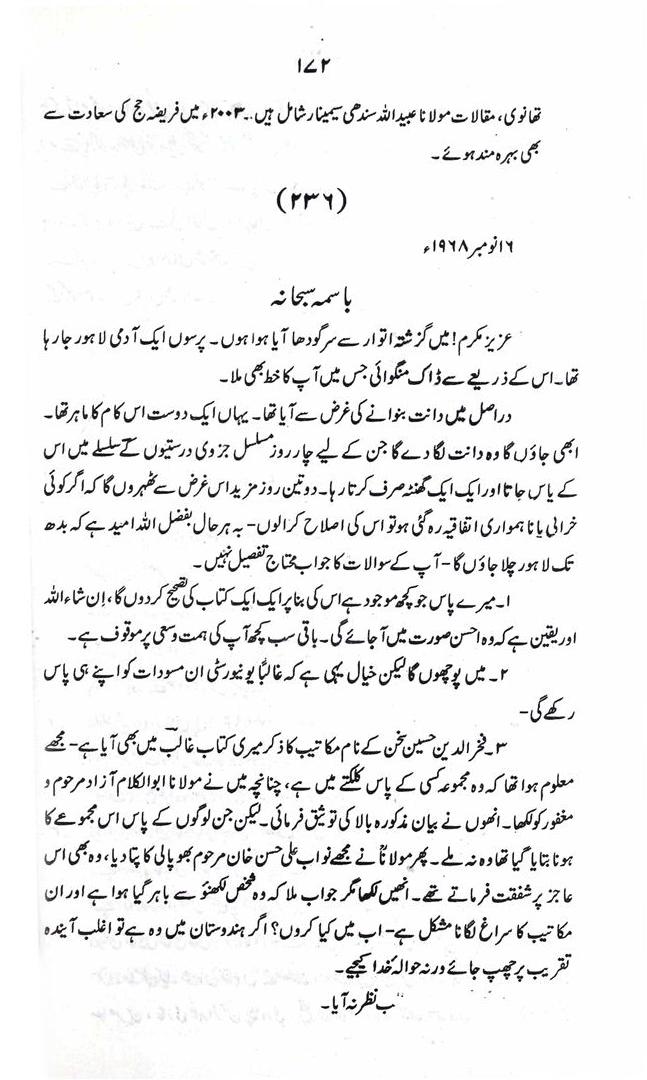 ۱۷۲
تھانوی، مقالات مولانا عبیداللہ سندھی سیمینار شامل ہیں۔ ۲۰۰۳ء میں فریضہ حج کی سعادت سے
بھی بہرہ مند ہوئے۔
(۲۳۶)
۱۶ نومبر ۱۹۶۸ء
باسمہ سبحانہ
عزیز مکرم! میں گزشتہ اتوار سے سرگودھا آیا ہوا ہوں۔ پرسوں ایک آدمی لاہور جا رہا
تھا۔ اس کے ذریعے سے ڈاک منگوائی جس میں آپ کا خط بھی ملا۔
دراصل میں دانت بنوانے کی غرض سے آیا تھا۔ یہاں ایک دوست اس کام کا ماہر تھا۔
ابھی جاؤں گا وہ دانت لگا دے گا جن کے لیے چار روز مسلسل جزوی درستیوں کے سلسلے میں اس
کے پاس جاتا اور ایک ایک گھنٹہ صرف کرتا رہا۔ دو تین روز مزید اس غرض سے ٹھہروں گا کہ اگر کوئی
خرابی یا ناہمواری اتفاقیہ رہ گئی ہو تو اس کی اصلاح کرالوں۔ بہ ہر حال بفضل اللہ امید ہے کہ بدھ
تک لاہور چلا جاؤں گا۔ آپ کے سوالات کا جواب محتاج تفصیل نہیں۔
۱۔ میرے پاس جو کچھ موجود ہے اس کی بنا پر ایک ایک کتاب کی تصحیح کر دوں گا، اِن شاء اللہ
اور یقین ہے کہ وہ احسن صورت میں آ جائے گی۔ باقی سب کچھ آپ کی ہمت و سعی پر موقوف ہے۔
۲۔ میں پوچھوں گا لیکن خیال یہی ہے کہ غالباً یونیورسٹی ان مسودات کو اپنے ہی پاس
رکھے گی۔
۳۔ فخر الدین حسین سخن کے نام مکاتیب کا ذکر میری کتاب غالب میں بھی آیا ہے۔ مجھے
معلوم ہوا تھا کہ وہ مجموعہ کسی کے پاس کلکتے میں ہے، چنانچہ میں نے مولانا ابوالکلام آزاد مرحوم و
مغفور کو لکھا۔ انھوں نے بیان مذکورہ بالا کی توثیق فرمائی۔ لیکن جن لوگوں کے پاس اس مجموعے کا
ہونا بتایا گیا تھا وہ نہ ملے۔ پھر مولانا نے مجھے نواب علی حسن خان مرحوم بھوپالی کا پتا دیا، وہ بھی اس
عاجز پر شفقت فرماتے تھے۔ انھیں لکھا مگر جواب ملا کہ وہ شخص لکھنؤ سے باہر گیا ہوا ہے اور ان
مکاتیب کا سراغ لگانا مشکل ہے۔ اب میں کیا کروں؟ اگر ہندوستان میں وہ ہے تو اغلب آیندہ
تقریب پر چھپ جائے ورنہ حوالہ خدا کیجیے۔
نظر نہ آیا۔